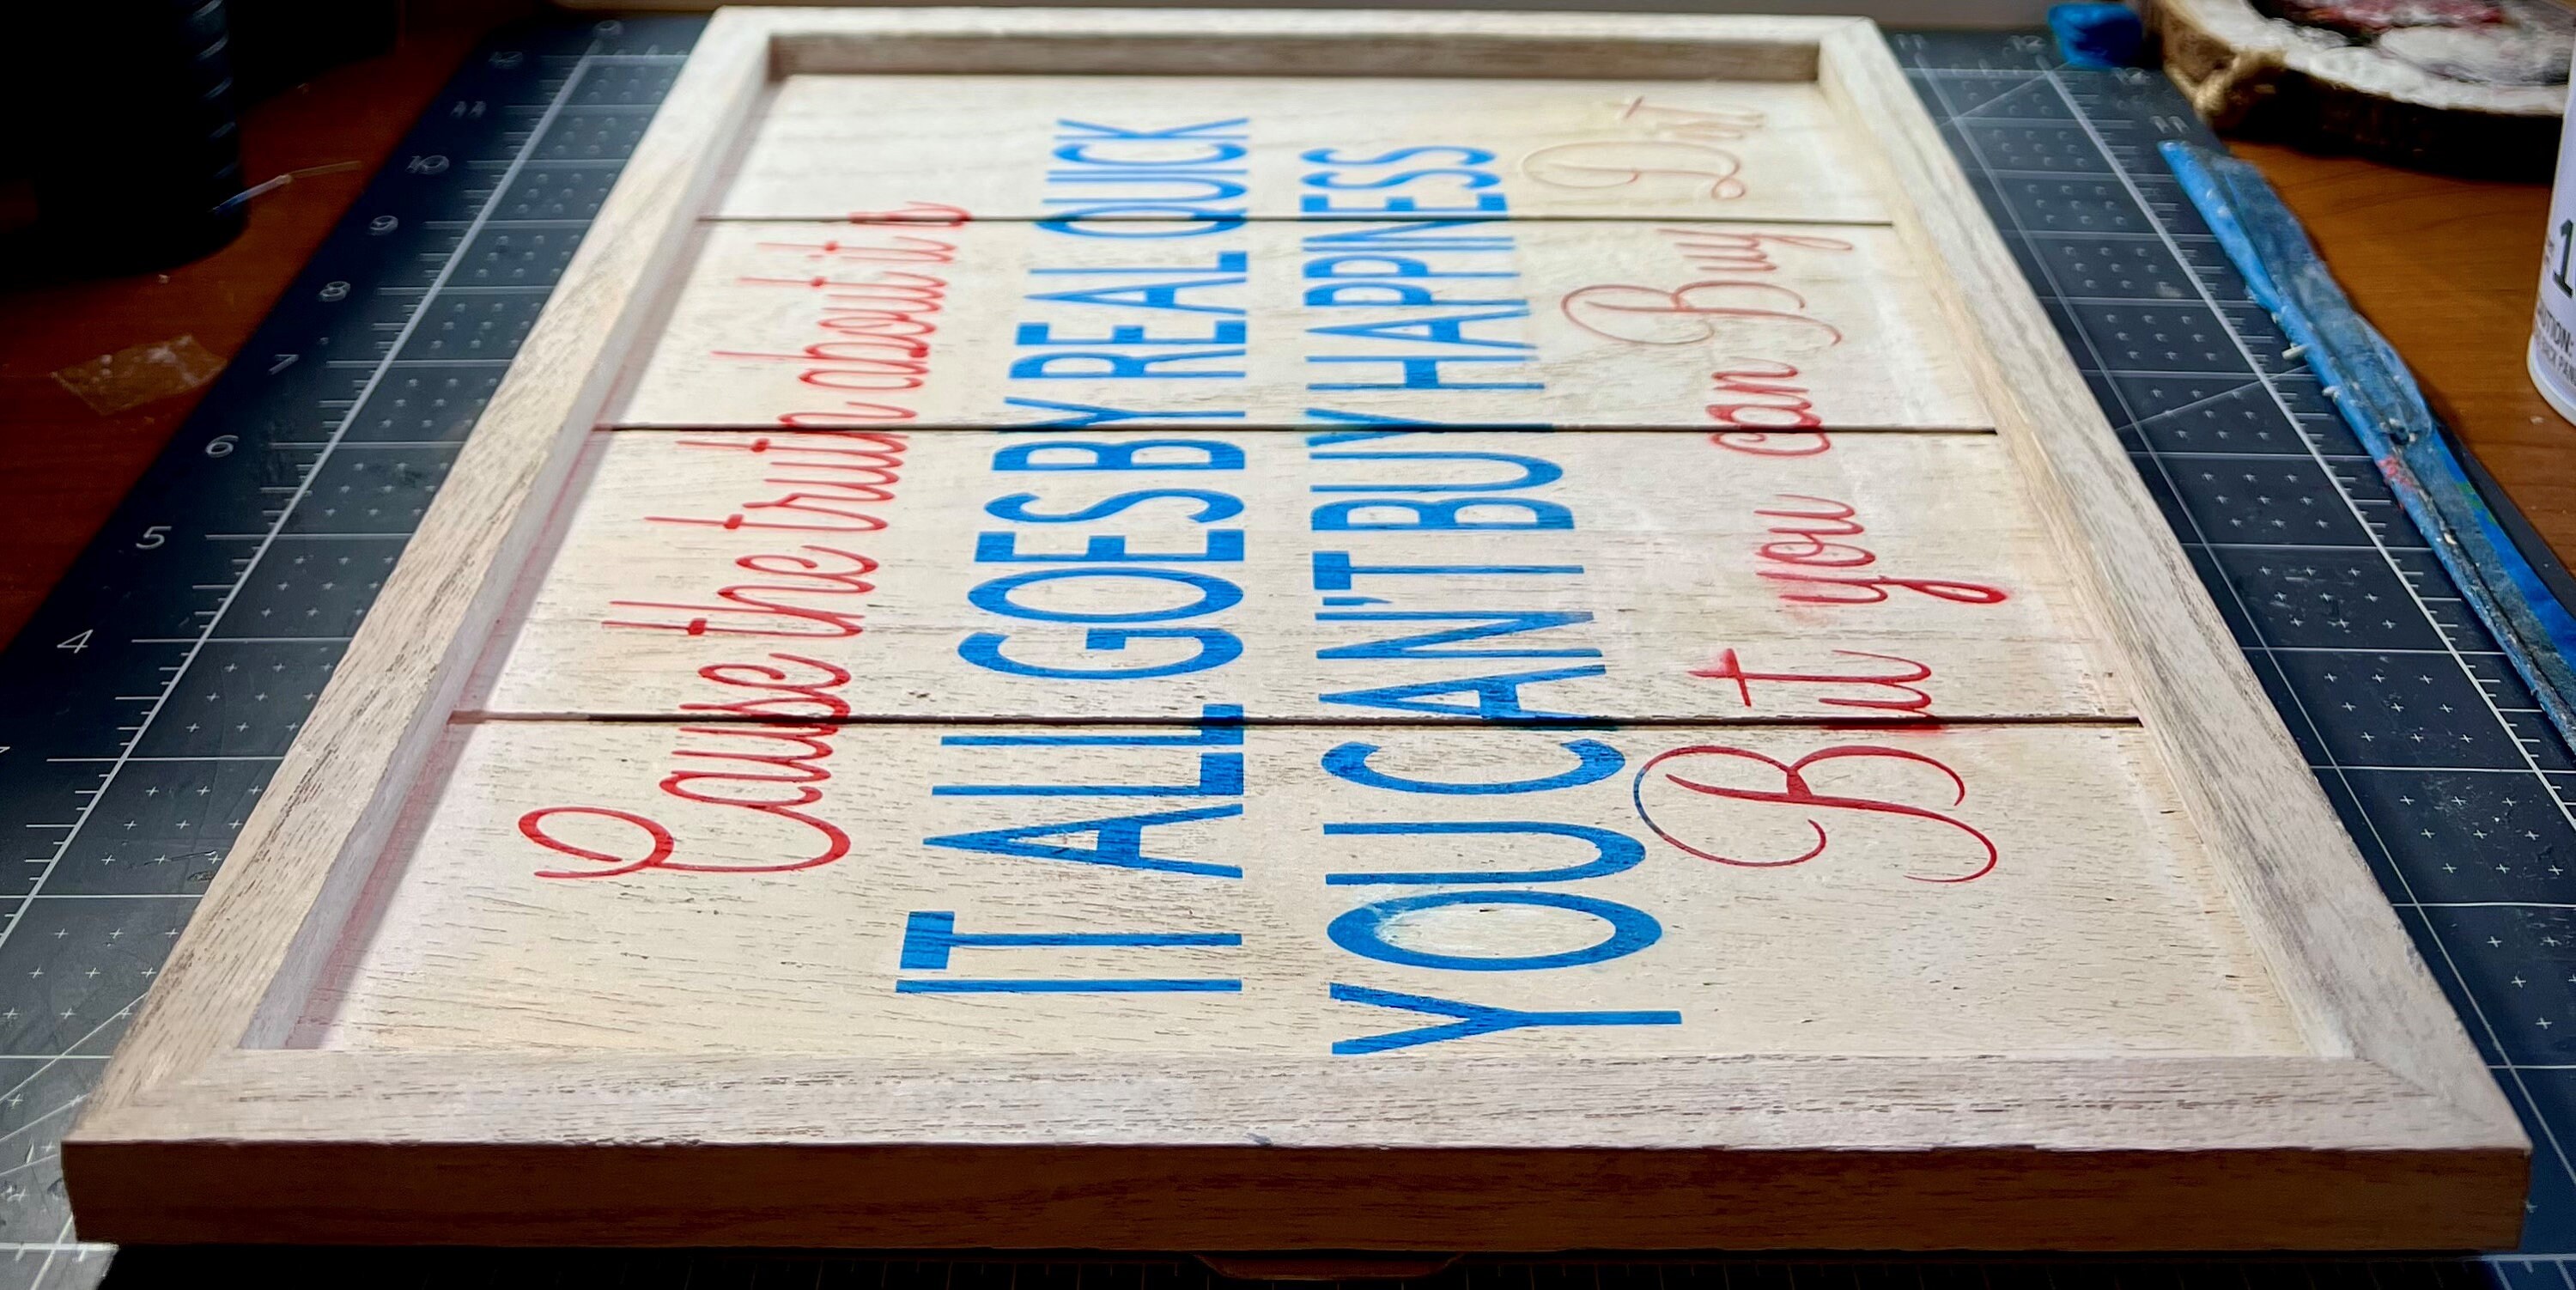 Cause the truth about it is
IT ALL GOES BY REAL QUICK
YOU CAN'T BUY HAPPINESS
But you can Buy Dirt
12
11
10
9
8
7
6
5
4
11 12
11
1
UTION: